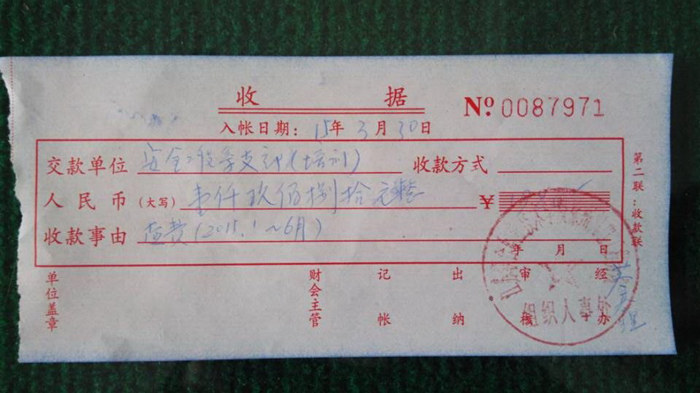 收 据
№ 0087971
入帐日期：15年3月30日
交款单位 收款方式
人民币(大写) 壹仟玖佰捌拾元整 ¥
收款事由 (2015.1～6月)
年 月 日
第二联：收款联
单位盖章 财会主管 记帐 出纳 审核 经办
组织人事处